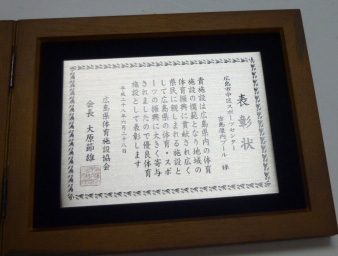 表彰状
広島市中区スポーツセンター
吉島屋内プール 様
貴施設は広島県内の体育
施設の模範となり地域の
体育振興に貢献され広く
県民に親しまれる施設と
して広島県の体育・スポ
ーツの振興に大きく寄与
されましたので優良体育
施設として表彰します
平成二十八年六月二十八日
広島県体育施設協会
会長 大原節雄